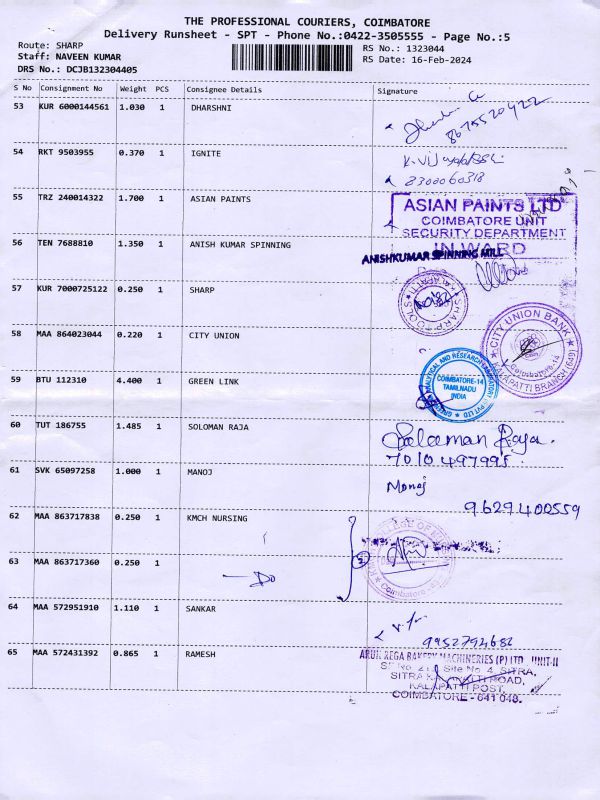 THE PROFESSIONAL COURIERS, COIMBATORE
Delivery Runsheet - SPT - Phone No.:0422-3505555 - Page No.:5
Route: SHARP
RS No.: 1323044
Staff: NAVEEN KUMAR
RS Date: 16-Feb-2024
DRS No.: DCJB132304405
S No Consignment No Weight PCS Consignee Details Signature
53 KUR 6000144561 1.030 1 DHARSHNI
8675520422
54 RKT 9503955 0.370 1 IGNITE
2300060318
55 TRZ 240014322 1.700 1 ASIAN PAINTS
ASIAN PAINTS LTD
COIMBATORE UNIT
SECURITY DEPARTMENT
IN WARD
56 TEN 7688810 1.350 1 ANISH KUMAR SPINNING
ANISHKUMAR SPINNING MILL
57 KUR 7000725122 0.250 1 SHARP
SHARP TOOLS
KALAPATTI
58 MAA 864023044 0.220 1 CITY UNION
CITY UNION BANK
Coimbatore-14
KALAPATTI BRANCH (640)
59 BTU 112310 4.400 1 GREEN LINK
ANALYTICAL AND RESEARCH LABORATORY
COIMBATORE-14
TAMILNADU
INDIA
60 TUT 186755 1.485 1 SOLOMAN RAJA
Soloman Raja.
7010497995.
61 SVK 65097258 1.000 1 MANOJ
Manoj
9629400559
62 MAA 863717838 0.250 1 KMCH NURSING
2
COLLEGE OF
Coimbatore
63 MAA 863717360 0.250 1
— Do
64 MAA 572951910 1.110 1 SANKAR
9952794682
65 MAA 572431392 0.865 1 RAMESH
ARUN REGA BAKERY MACHINERIES (P) LTD UNIT-II
Site No. 4, SITRA,
SITRA ROAD,
KALAPATTI POST,
COIMBATORE - 641 048.